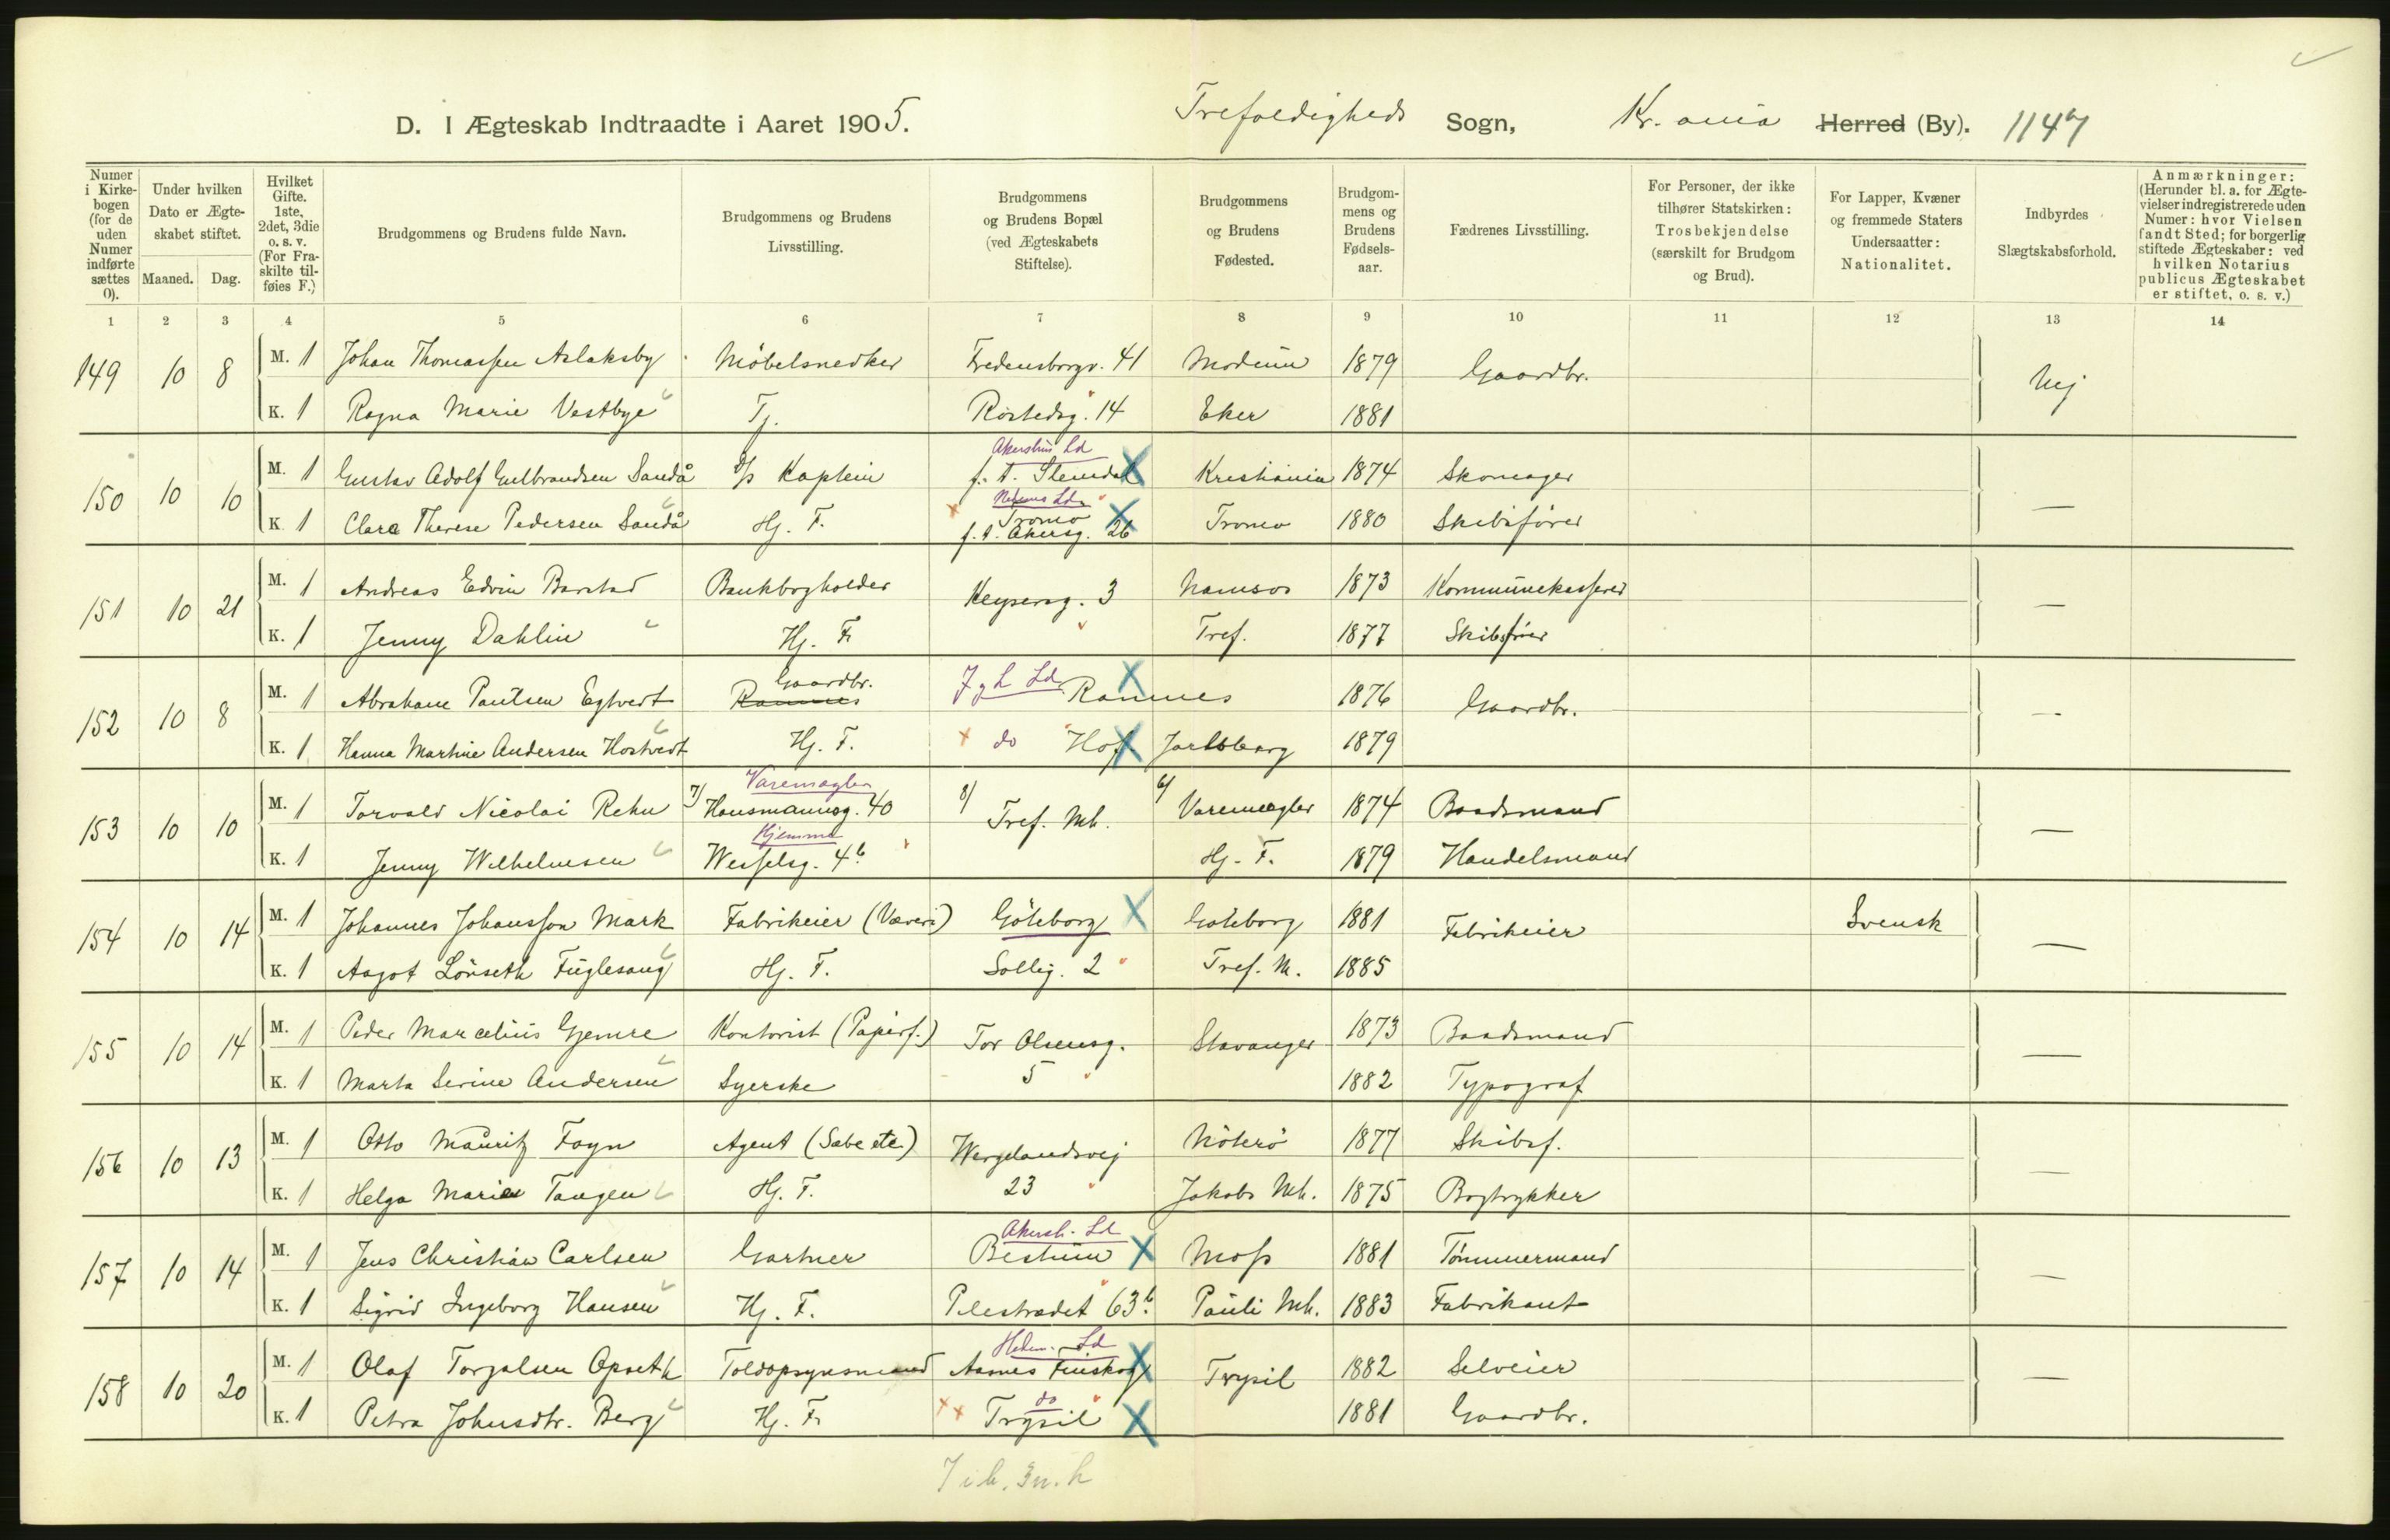 D. I Ægteskab Indtraadte i Aaret 1905. Trefoldigheds Sogn, Kr. ania Herred (By). 1147
Numer i Kirkebogen (for de uden Numer indførte sættes 0).
Under hvilken Dato er Ægteskabet stiftet.
Maaned. Dag.
Hvilket Gifte. 1ste, 2det, 3die o. s. v. (For Fraskilte tilføies F.)
Brudgommens og Brudens fulde Navn.
Brudgommens og Brudens Livsstilling.
Brudgommens og Brudens Bopæl (ved Ægteskabets Stiftelse).
Brudgommens og Brudens Fødested.
Brudgommens og Brudens Fødselsaar.
Fædrenes Livsstilling.
For Personer, der ikke tilhører Statskirken: Trosbekjendelse (særskilt for Brudgom og Brud).
For Lapper, Kvæner og fremmede Staters Undersaatter: Nationalitet.
Indbyrdes Slægtskabsforhold.
Anmærkninger: (Herunder bl. a. for Ægtevielser indregistrerede uden Numer: hvor Vielsen fandt Sted; for borgerlig stiftede Ægteskaber: ved hvilken Notarius publicus Ægteskabet er stiftet, o. s. v.)
1 2 3 4 5 6 7 8 9 10 11 12 13 14
149 10 8 M. 1 Johan Thomassen Aslaksby Møbelsnedker Fredensborgv. 41 Modum 1879 Gaardbr. Nej
K. 1 Ragna Marie Vestbye Tj. Rostedsg. 14 Eker 1881
Akershus Ld
150 10 10 M. 1 Gustav Adolf Gulbrandsen Sandå D/s Kaptein f. t. Slemdal Kristiania 1874 Skomager —
Nedenes Ld.
Tromø
K 1 Clara Therese Pedersen Sandå Hj. F. f. t. Akersg. 26 Tromø 1880 Skibsfører
151 10 21 M. 1 Andreas Edvin Barstad Bankbogholder Keysersg. 3 Namsos 1873 Kommunekasserer —
K. 1 Jenny Dahlin Hj. F. Tref. 1877 Skibsfører
Gaardbr.
152 10 8 M. 1 Abraham Paulsen Egtvedt Ramnes J & L Ld Ramnes 1876 Gaardbr. —
K. 1 Hanna Martine Andersen Hostvedt Hj. F. do Hof Jarlsberg 1879
Varemægler
153 10 10 M. 1 Torvald Nicolai Rehn 7/ Hausmannsg. 40 8/ Tref. Mh. 6/ Varemægler 1874 Baadsmand —
Hjemme
K. 1 Jenny Wilhelmsen Wesselsg. 4b. Hj. F. 1879 Handelsmand
154 10 14 M. 1 Johannes Johansson Mark Fabrikeier (Væveri) Göteborg Göteborg 1881 Fabrikeier Svensk —
K. 1 Aagot Lönseth Fuglesang Hj. F. Sollig. 2 Tref. M. 1885
155 10 14 M. 1 Peder Marcelius Gjemre Kontorist (Papirf.) Tor Olsensg. Stavanger 1873 Baadsmand —
K. 1 Marta Serine Andersen Syerske 5 1882 Typograf
156 10 13 M. 1 Otto Mauritz Foyn Agent (Sæbe etc) Wergelandsvej Nöterö 1877 Skibsf. —
K. 1 Helga Marie Tangen Hj. F. 23 Jakobs Mh. 1875 Bogtrykker
Akersh. Ld
157 10 14 M. 1 Jens Christian Carlsen Gartner Bestum Moss 1881 Tømmermand —
K. 1 Sigrid Ingeborg Hansen Hj. F. Pilestrædet 63b. Pauli Mh. 1883 Fabrikant
Hedem. Ld
158 10 20 M. 1 Olaf Torgalsen Opseth Toldopsynsmand Aasnes Finskog Trysil 1882 Selveier —
do
K. 1 Petra Johnsdtr. Berg Hj. F. Trysil 1881 Gaardbr.
7 i b. 3 u. h